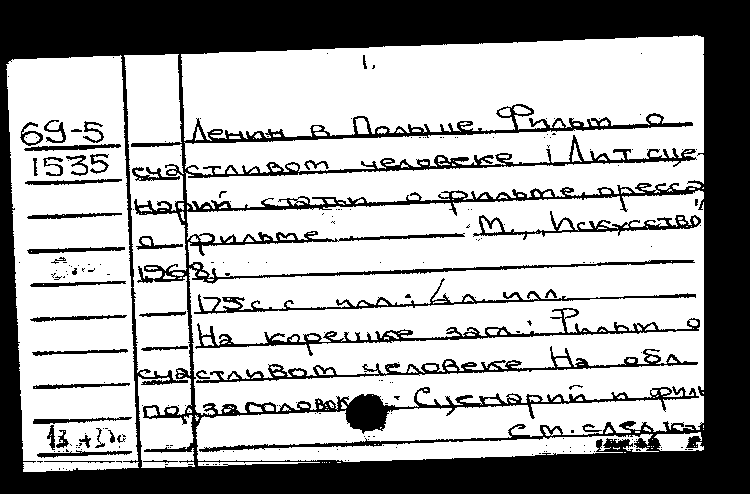 1.
69-5 Ленин в Польше. Фильм о
1535 счастливом человеке. [Лит. сце-
нарий, статьи о фильме, пресса
о фильме М., „Искусство",
1968].
175 с. с илл.; 4 л. илл.
На корешке загл.: Фильм о
счастливом человеке На обл.
подзаголовок: Сценарий и филь
см. след. кар